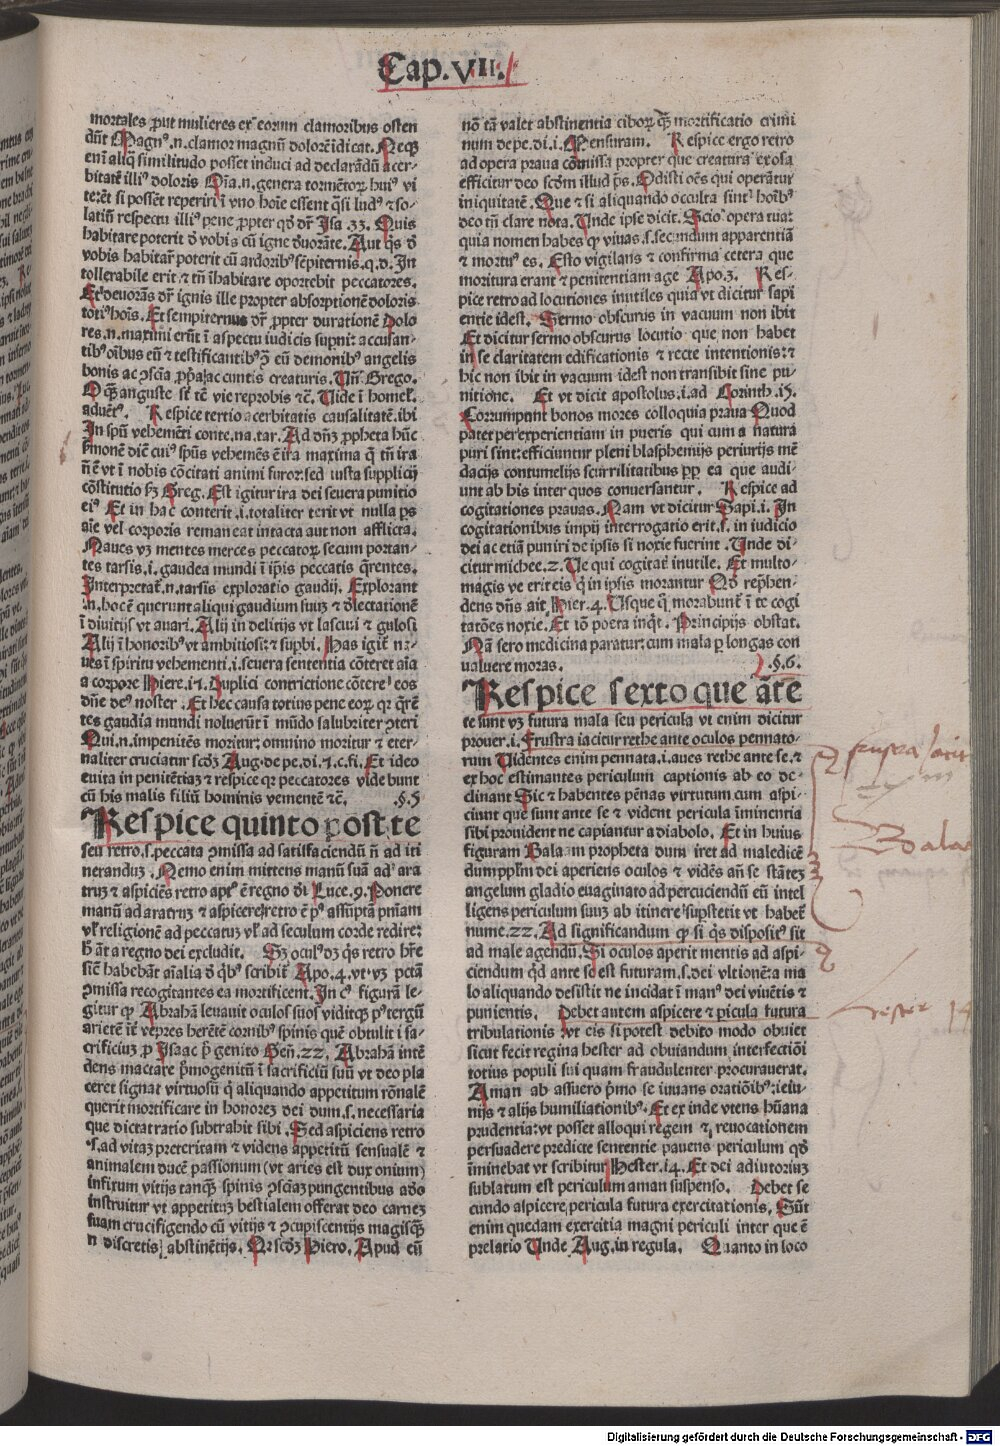 Cap.VII.
mortales ꝓut mulieres ex eorum clamoribus osten
dūt Magnꝰ.n.clamor magnū dolorē idicat. Neqꝫ
eni aliq̄ similitudo posset induci ad declarādū acer-
bitatē illiꝰ doloris Oīa.n.genera tormētoꝝ huiꝰ vi
te rēt si possēt reperiri ī vno hoīe essent q̄si ludꝰ ⁊ so-
latiū respectu illiꝰ pene ꝓpter qd̄ dr̄ Isa 33. Quis
habitare poterit d̄ vobis cū igne deuorāte. Aut q̄s d̄
vobis habitaƀ poterit cū ardoribꝰ sēpiternis.q.d. In
tollerabile erit ⁊ tn̄ ihabitare oportebit peccatores.
Et deuorās dr̄ ignis ille propter absorptionē doloris
totiꝰ hoīs. Et sempiternus dr̄ ꝓpter durationē Dolo
res.n.maximi erūt ī aspectu iudicis supni: accusan-
tibꝰ oībus eū ⁊ testificantibꝰ ꝯ̄ eū demonibꝰ angelis
bonis ac ꝯscīa ꝓpīa|ac cuntis creaturis. Vn̄ Grego.
O q̄ꝫ anguste sūt tūc vie reprobis ⁊c̄. Vide ī homel.
aduētꝰ. Respice tertio acerbitatis causalitatē.ibi
In spū vehemēti conte.na.tar. Ad dn̄ꝫ ꝓpheta hūc
ẜmonē diē cuiꝰ spūs vehemēs ē ira maxima q̄ tn̄ ira
n̄ ē vt ī nobis cōcitati animi furor: sed iusta supplicij
cōstitutio ẜm Greg. Est igitur ira dei seuera punitio
eiꝰ Et in hac conterit.i.totaliter terit vt nulla ps
aīe vel corporis remaneat intacta aut non afflicta.
Naues vꝫ mentes merces peccatoꝝ secum portan-
tes tarsis.i. gaudea mundi ī īpīs peccatis q̄rentes.
Interpretat̄.n.tarsis exploratio gaudij. Explorant
.n.hoc ē querunt aliqui gaudium suuꝫ ⁊ dlectationē
ī diuitijs vt auari. Alij in delitijs vt lasciui ⁊ gulosi
Alij ī honoribꝰ vt ambitiosi: ⁊ supbi. Has igit̄ na-
ues ī spiritu vehementi .i. seuera sententia cōteret aīa
a corpore Hiere.17. Duplici contrictione cōtere eos
dn̄e deꝰ noster . Et hec causa totius pene eoꝝ qꝛ q̄rē
tes gaudia mundi noluerūt ī mūdo salubriter ꝯteri
Qui.n.impenitēs moritur: omnino moritur ⁊ eter-
naliter cruciatur scd̄ꝫ Aug.de pe.di.7.c.fi. Et ideo
euita in penitētiaꝫ ⁊ respice qꝛ peccatores vide bunt
cū his malis filiū hominis vementē ⁊c̄. .§.5
Respice quinto post te
seu retro.s.peccata ꝯmissa ad satisfaciendū n̄ ad iti
nerandū. Nemo enim mittens manū suā adꝰ ara
truꝫ ⁊ aspiciēs retro aptꝰ ē regno di Luce.9. Ponere
manū ad aratruꝫ ⁊ aspicere|retro ē pꝰ assūptā pn̄iam
vl̄ religionē ad peccatū vl̄ ad seculum corde redire:
ħ āt a regno dei excludit. Sꝫ oculꝰ dꝫ q̄s retro hr̄e
sic̄ habebāt aīalia d̄ qbꝰ scribit̄ Apo.4.vt vꝫ pctā
ꝯmissa recogitantes ea mortificent. In cꝰ figurā le-
gitur qꝫ Abrahā leuauit oculos suos|viditqꝫ pꝰ tergū
arietē ite̅ vepres herētē cornibꝰ spinis quē obtulit i sa-
crificiuꝫ ꝓ Isaac p̄ genito Gen̄.22. Abrahā intē
dens mactare p̄mogenitū ī sacrificiū suū vt deo pla
ceret signat virtuosū q̄ aliquando appetitum rōnalē
querit mortificare in honoreꝫ dei dum.s.necessaria
que dictat ratio subtrahit sibi . Sed aspiciens retro
.s.ad vitaꝫ preteritam ⁊ videns appetitū sensualē ⁊
animalem ducē passionum (vt aries est dux ouium)
infixum vitijs tanqꝫ spinis ꝯsciaꝫ pungentibus ado
instruitur vt appetituꝫ bestialem offerat deo carneꝫ
suam crucifigendo cū vitijs ⁊ ꝯcupiscentijs magisqꝫ
n discretis| abstinētijs. Qꝛ scd̄ꝫ Hiero. Apud eū
nō tā valet abstinentia ciboꝝ q̄ꝫ mortificatio crimi
num de pe.di.i. Mensuram. Respice ergo retro
ad opera praua cōmissa propter que creatura exosa
efficitur deo scd̄m illud ps̄. Odisti oēs qui operātur
iniquitatē. Que ⁊ si aliquando occulta sint hoībꝰ
deo tn̄ clare nota. Vnde ipse dicit. Scio opera tua:
quia nomen habes qꝫ viuas.s.secundum apparentiā
⁊ mortuꝰ es. Esto vigilans ⁊ confirma cetera que
moritura erant ⁊ penitentiam age Apo.3. Res-
pice retro ad locutiones inutiles quia vt dicitur sapi
entie idest. Sermo obscurus in vacuum non ibit
Et dicitur sermo obscurus locutio que non habet
in se claritatem edificationis ⁊ recte intentionis: ⁊
hic non ibit in vacuum idest non transibit sine pu-
nitione. Et vt dicit apostolus.i.ad Corinth.15.
Corrumpunt bonos mores colloquia praua Quod
patet per experientiam in pueris qui cum a natura
puri sint: efficiuntur pleni blasphemijs periurijs mē
dacijs contumelijs scurrilitatibus ꝓp ea que audi-
unt ab his inter quos conuersantur. Respice ad
cogitationes prauas. Nam vt dicitur Sapi.i. In
cogitationibus impij interrogatio erit.s. in iudicio
dei ac etiā puniri de ipsis si noxie fuerint . Unde di-
citur michee.2. Ue qui cogitat̄ inutile. Et multo-
magis ve erit eis q̄ in ipsis morantur Qd̄ reph̄en-
dens dn̄s ait Hier.4. Usque q̄ morabunt̄ ī te cogi
tatōes noxie. Et iō poeta inqt. Principijs obstat.
Nā sero medicina paratur: cum mala ꝑ longas con
ualuere moras. .§.6.
Respice sexto que āte
te sunt vꝫ futura mala seu pericula vt enim dicitur
prouer.i. Frustra iacitur rethe ante oculos pennato-
rum Uidentes enim pennata.i.aues rethe ante se.⁊
ex hoc estimantes periculum captionis ab eo de-
clinant Sic ⁊ habentes pēnas virtutum cum aspi-
ciunt que sunt ante se ⁊ vident pericula īminentia
sibi prouident ne capiantur a diabolo. Et in huius
figuram Balaam propheta dum iret ad maledicē
dum pplm̄ dei aperiens oculos ⁊ vidēs an̄ se stātēꝫ
angelum gladio euaginato ad percuciendū eū intel
ligens periculum suuꝫ ab itinere supstetit vt habet̄
nume.22. Ad significandum qꝫ si q̄s dispositꝰ sit
ad male agendū. Si oculos aperit mentis ad aspi-
ciendum qd̄ ante se est futuram.s.dei vltionē: a ma
lo aliquando desistit ne incidat ī manꝰ dei viuētis ⁊
punientis. Debet autem aspicere ⁊ picula futura
tribulationis vt eis si potest debito modo obuiet
sicut fecit regina hester ad obuiandum interfectiōi
totius populi sui quam fraudulenter procurauerat.
Aman ab assuero p̄mo se iuuans oratiōibꝰ: ieiu-
nijs ⁊ alijs humiliationibꝰ. Et ex inde vtens hūana
prudentia: vt posset alloqui regem ⁊ reuocationem
persuadere predicte sententie pauens periculum qd̄
īminebat vt scribitur Hester.i4. Et dei adiutoriuꝫ
sublatum est periculum aman suspenso. Debet se
cundo aspicere pericula futura exercitationis. Sūt
enim quedam exercitia magni periculi inter que ē
prelatio Unde Aug.in regula. Quanto in loco
frustra iacit
Balaa
Hester 14
Digitalisierung gefördert durch die Deutsche Forschungsgemeinschaft - DFG